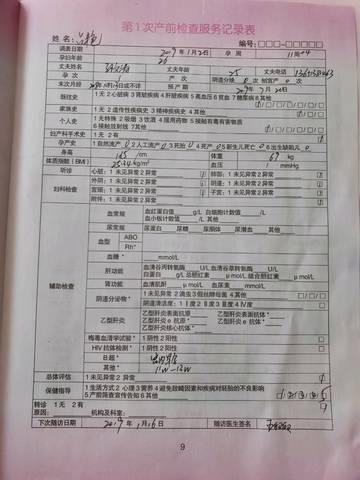 第1次产前检查服务记录表
姓名: 编号:□□□-□□□□□
填表日期 2019年1月2日 孕周 11周+4
孕妇年龄 26
丈夫姓名 丈夫年龄 25 丈夫电话
孕次 1 产次 阴道分娩 0 次 剖宫产 0 次
末次月经 预产期 2019年7月20日
既往史 1无 2心脏病 3肾脏疾病 4肝脏疾病 5高血压 6贫血 7糖尿病 8其他
家族史 1无 2遗传性疾病史 3精神疾病史 4其他
个人史 1无特殊 2吸烟 3饮酒 4服用药物 5接触有毒有害物质
6接触放射线 7其他
妇产科手术史 1无 2有
孕产史 1自然流产 0 2人工流产 0 3死胎 0 4死产 0 5新生儿死亡 0 6出生缺陷儿 0
身高 165 cm 体重 69 kg
体质指数(BMI) 25.34 kg/m² 血压 / mmHg
听诊 心脏:1未见异常2异常 肺部:1未见异常2异常
妇科检查 外阴:1未见异常2异常 阴道:1未见异常2异常
宫颈:1未见异常2异常 子宫:1未见异常2异常
附件:1未见异常2异常
辅助检查 血常规 血红蛋白值 g/L 白细胞计数值 /L
血小板计数值 /L 其他
尿常规 尿蛋白 尿糖 尿酮体 尿潜血 其他
血型 ABO
Rh*
血糖* mmol/L
肝功能 血清谷丙转氨酶 U/L 血清谷草转氨酶 U/L
白蛋白 g/L 总胆红素 μmol/L 结合胆红素 μmol/L
肾功能 血清肌酐 μmol/L 血尿素 mmol/L
阴道分泌物* 1未见异常 2滴虫 3假丝酵母菌 4其他
阴道清洁度:1Ⅰ度 2Ⅱ度 3Ⅲ度 4Ⅳ度
乙型肝炎 乙型肝炎表面抗原 乙型肝炎表面抗体*
乙型肝炎e抗原* 乙型肝炎e抗体*
乙型肝炎核心抗体*
梅毒血清学试验* 1阴性2阳性
HIV抗体检测* 1阴性2阳性
B超* 宫内孕
其他* 11W-12W
总体评估 1未见异常2异常
保健指导 1生活方式2心理3营养4避免致畸因素和疾病对胚胎的不良影响
5产前筛查宣传告知6其他
转诊 1无 2有
原因: 机构及科室:
下次随访日期 2019年1月16日 随访医生签名
9